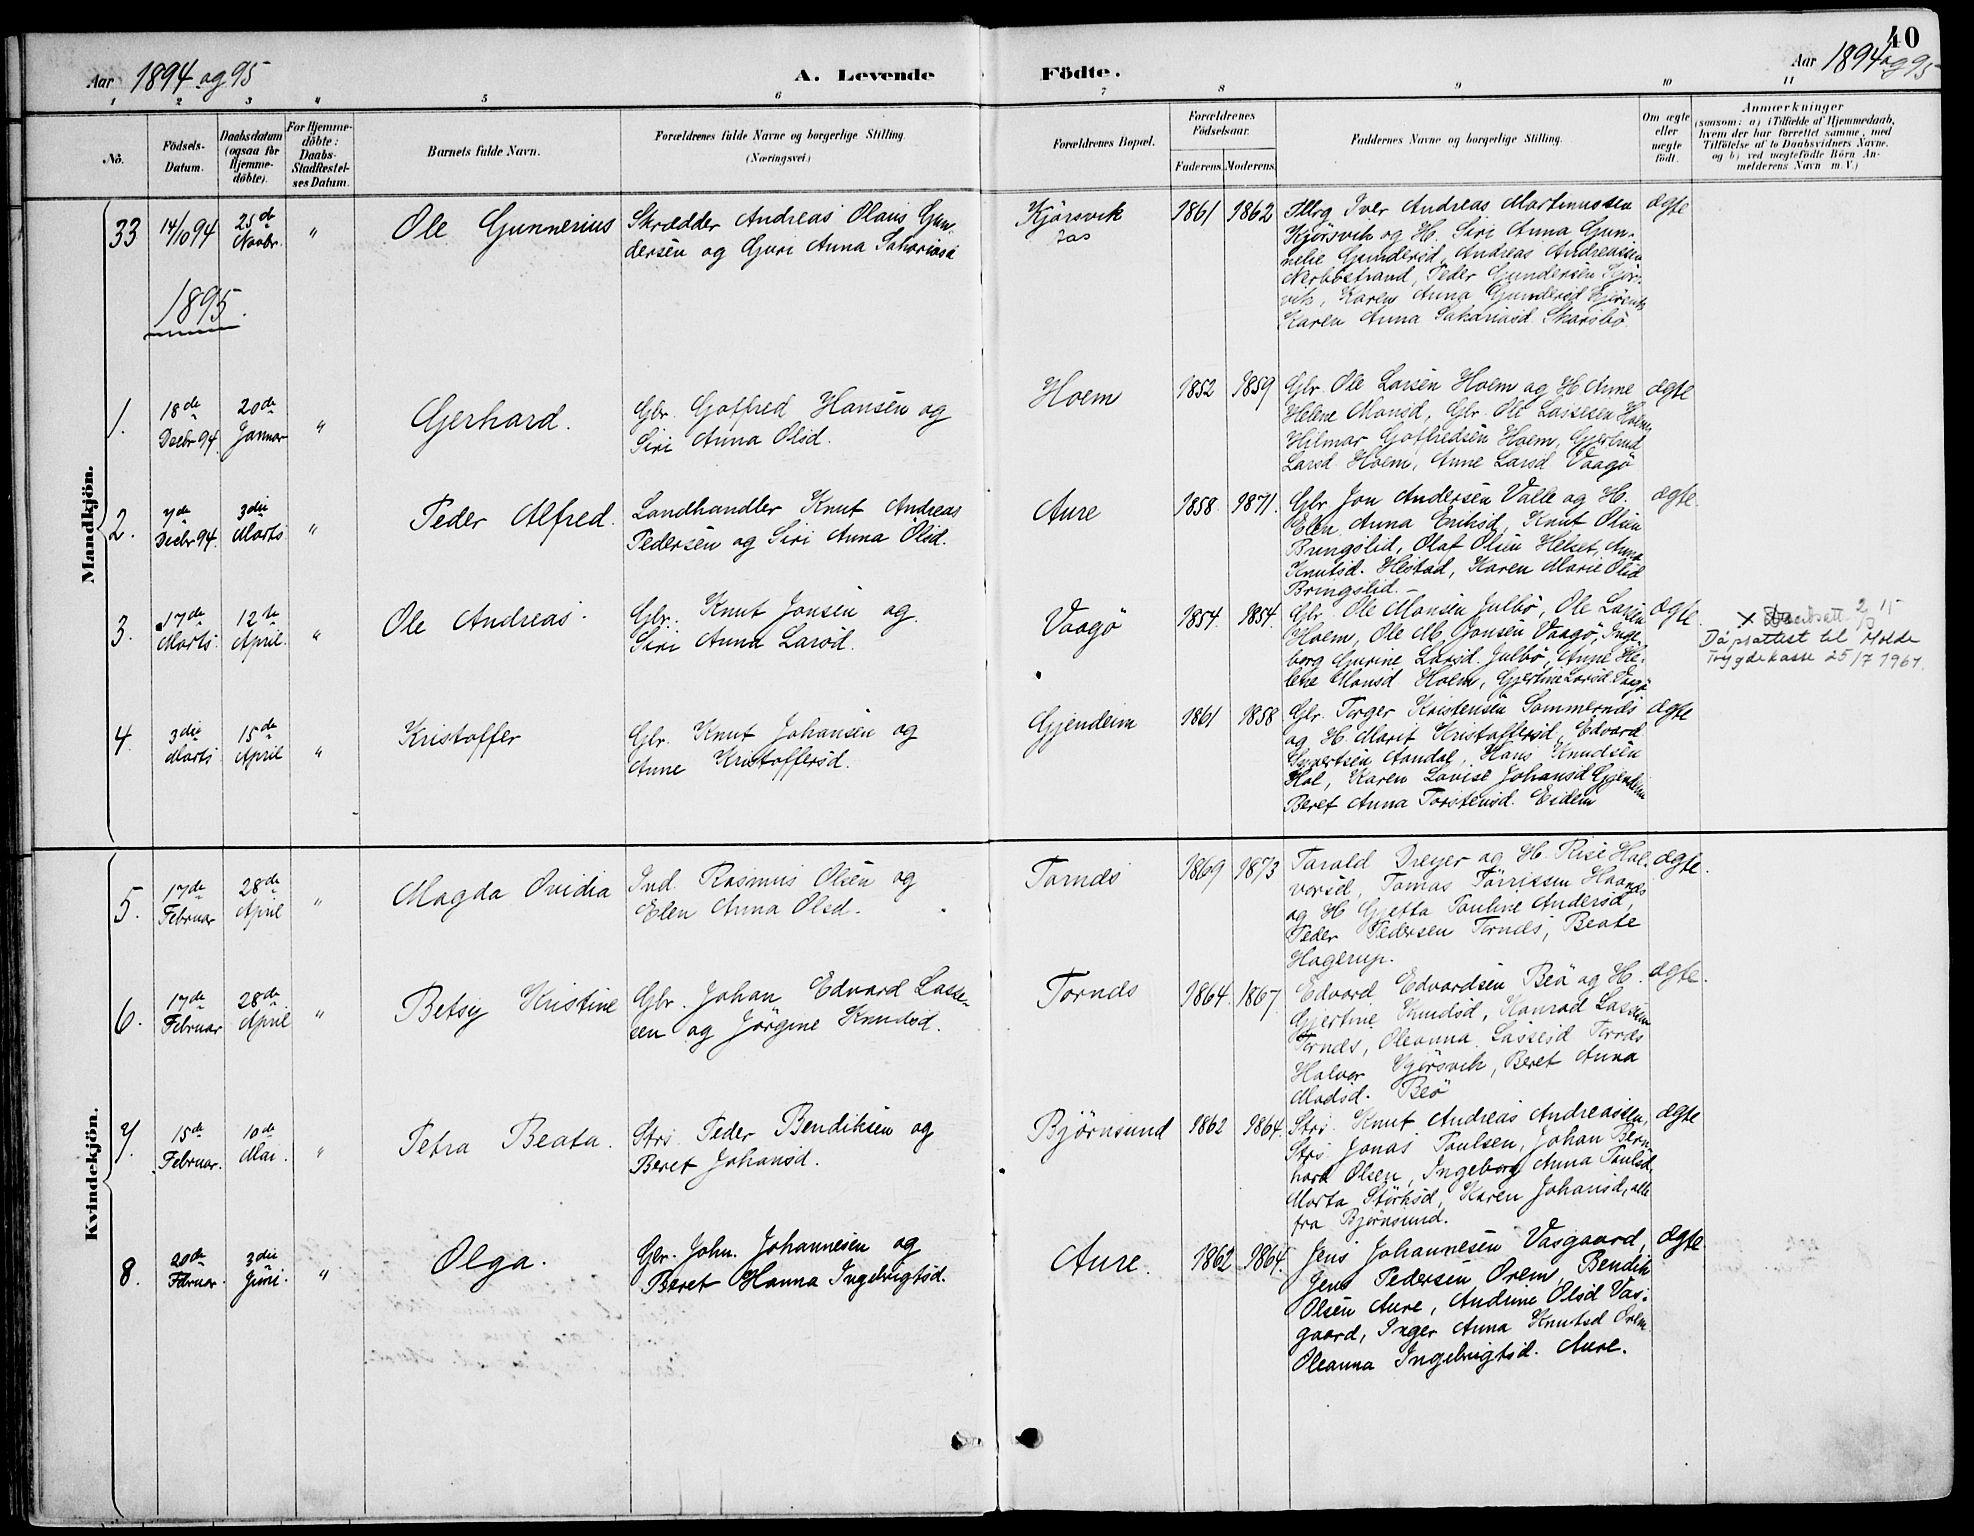 40
Aar 1894 og 95
A. Levende Födte.
Aar 1894 og 95
1 2 3 4 5 6 7 8 9 10 11
No.
Födsels-
Datum.
Daabsdatum
(ogsaa for
Hjemme-
döbte).
For Hjemme-
döbte:
Daabs-
Stadfæstel-
ses Datum.
Barnets fulde Navn.
Forældrenes fulde Navne og borgerlige Stilling.
(Næringsvei.)
Forældrenes Bopæl.
Forældrenes
Födselsaar.
Faderens. Moderens.
Faddernes Navne og borgerlige Stilling.
Om ægte
eller
uægte
födt.
Anmærkninger
(saasom: a) i Tilfælde af Hjemmedaab,
hvem der har forrettet samme, med
Tilföielse af to Daabsvidners Navne.
og b) ved uægtefödte Börn An-
melderens Navn m. V.)
Mandkjön.
33 14/10 94 25de Novbr. " Ole Gunnerius
Skrædder Andreas Olaus Gun-
dersen og Guri Anna Sakariasd
Kjørsvik
1861 1862
Iver Andreas Martinussen
Kjørsvik og H. Siri Anna Gun-
nelie Gundersd, Andreas Andreassen
Nerbøstrand, Peder Gundersen Kjør-
vik, Karen Anna Gundersd Kjørsvik
Karen Anna Sakariasd. Skarsbö.
ægte
1895.
1. 18de Decbr 94. 20de Januar " Gerhard.
Gbr. Goffred Hansen og
Siri Anna Olsd.
Hoem
1852 1859
Gbr. Ole Larsen Hoem og H. Anne
Helene Monsd, Gbr. Ole Lassesen Hoem
Hilmar Goffredsen Hoem, Gjertrud
Larsd. Hoem, Anne Larsd Vaagö
ægte
2. 7de Decbr 94. 3die Marts " Peder Alfred.
Landhandler Knut Andreas
Pedersen og Siri Anna Olsd.
Aure
1858. 1871.
Gbr Jon Andersen Valle og H.
Elen Anna Eriksd, Knut Olsen
Bringslid, Olaf Olsen Helset, Anna
Knutsd. Hestad, Karen Marie Olsd
Bringslid.
ægte.
3. 17de Marts 12te April. " Ole Andreas.
Gbr. Knut Jonsen og
Siri Anna Larsd.
Vaagö
1854. 1854.
Gbr. Ole Monsen Julbö, Ole Larsen
Hoem, Ole M. Jonsen Vaagö, Inge-
borg Gurine Larsd. Julbö, Anne He-
lene Monsd Hoem, Gjertine Larsd Vaagö
ægte.
Dåpsattest til Molde
Trygdekasse 25/7 1961.
4. 3die Marts 15de April " Kristoffer
Gbr. Knut Johansen og
Anne Kristoffersd.
Gjendeim
1861 1858
Gbr. Torger Kristensen Sommernes
og H. Marit Kristoffersd, Edvard
Syvertsen Aandal, Hans Knudsen
Hol, Karen Lovise Johansd Gjendeim
Beret Anna Torstensd. Eidem
ægte
Kvindekjön.
5. 17de Februar 28de April " Magda Ovidia
Ind. Rasmus Olsen og
Elen Anna Olsd.
Tornes
1869 1873
Tarald Dreyer og H. Rise Hal-
vorsd, Tomas Törrissen Haanes
og H. Gjetta Pauline Andersd,
Peder Pedersen Tornes, Beate
Hagerup.
ægte.
6. 17de Februar 28de April " Betsy Kristine
Gbr. Johan Edvard Lasse-
sen og Jörgine Knudsd.
Tornes
1864. 1867.
Edvard Edvardsen Beö og H.
Gjertine Knudsd, Konrad Lassesen
Tornes, Oleanna Lassesd Tornes
Halvor Kjörsvik, Beret Anna
Madsd. Beö
ægte.
7. 15de Februar. 10de Mai. " Petra Beata.
Stri. Peder Bendiksen og
Beret Johansd.
Björnsund
1862 1864.
Stri. Knut Andreas Andreassen,
Stri Jonas Paulsen, Johan Bern-
hard Olsen, Ingeborg Anna Paulsd.
Marta Störksd, Karen Johansd, alle
fra Bjørnsund.
ægte
8. 20de Februar. 3die Juni. " Olga.
Gbr. John. Johannesen og
Beret Hanna Ingebrigtsd.
Aure.
1862 1864.
Jens Johannesen Vasgaard,
Jens Pedersen Orem, Bendik
Olsen Aure, Andrine Olsd Vas-
gaard, Inger Anna Knutsd Orem
Oleanna Ingebrigtsd. Aure.
ægte